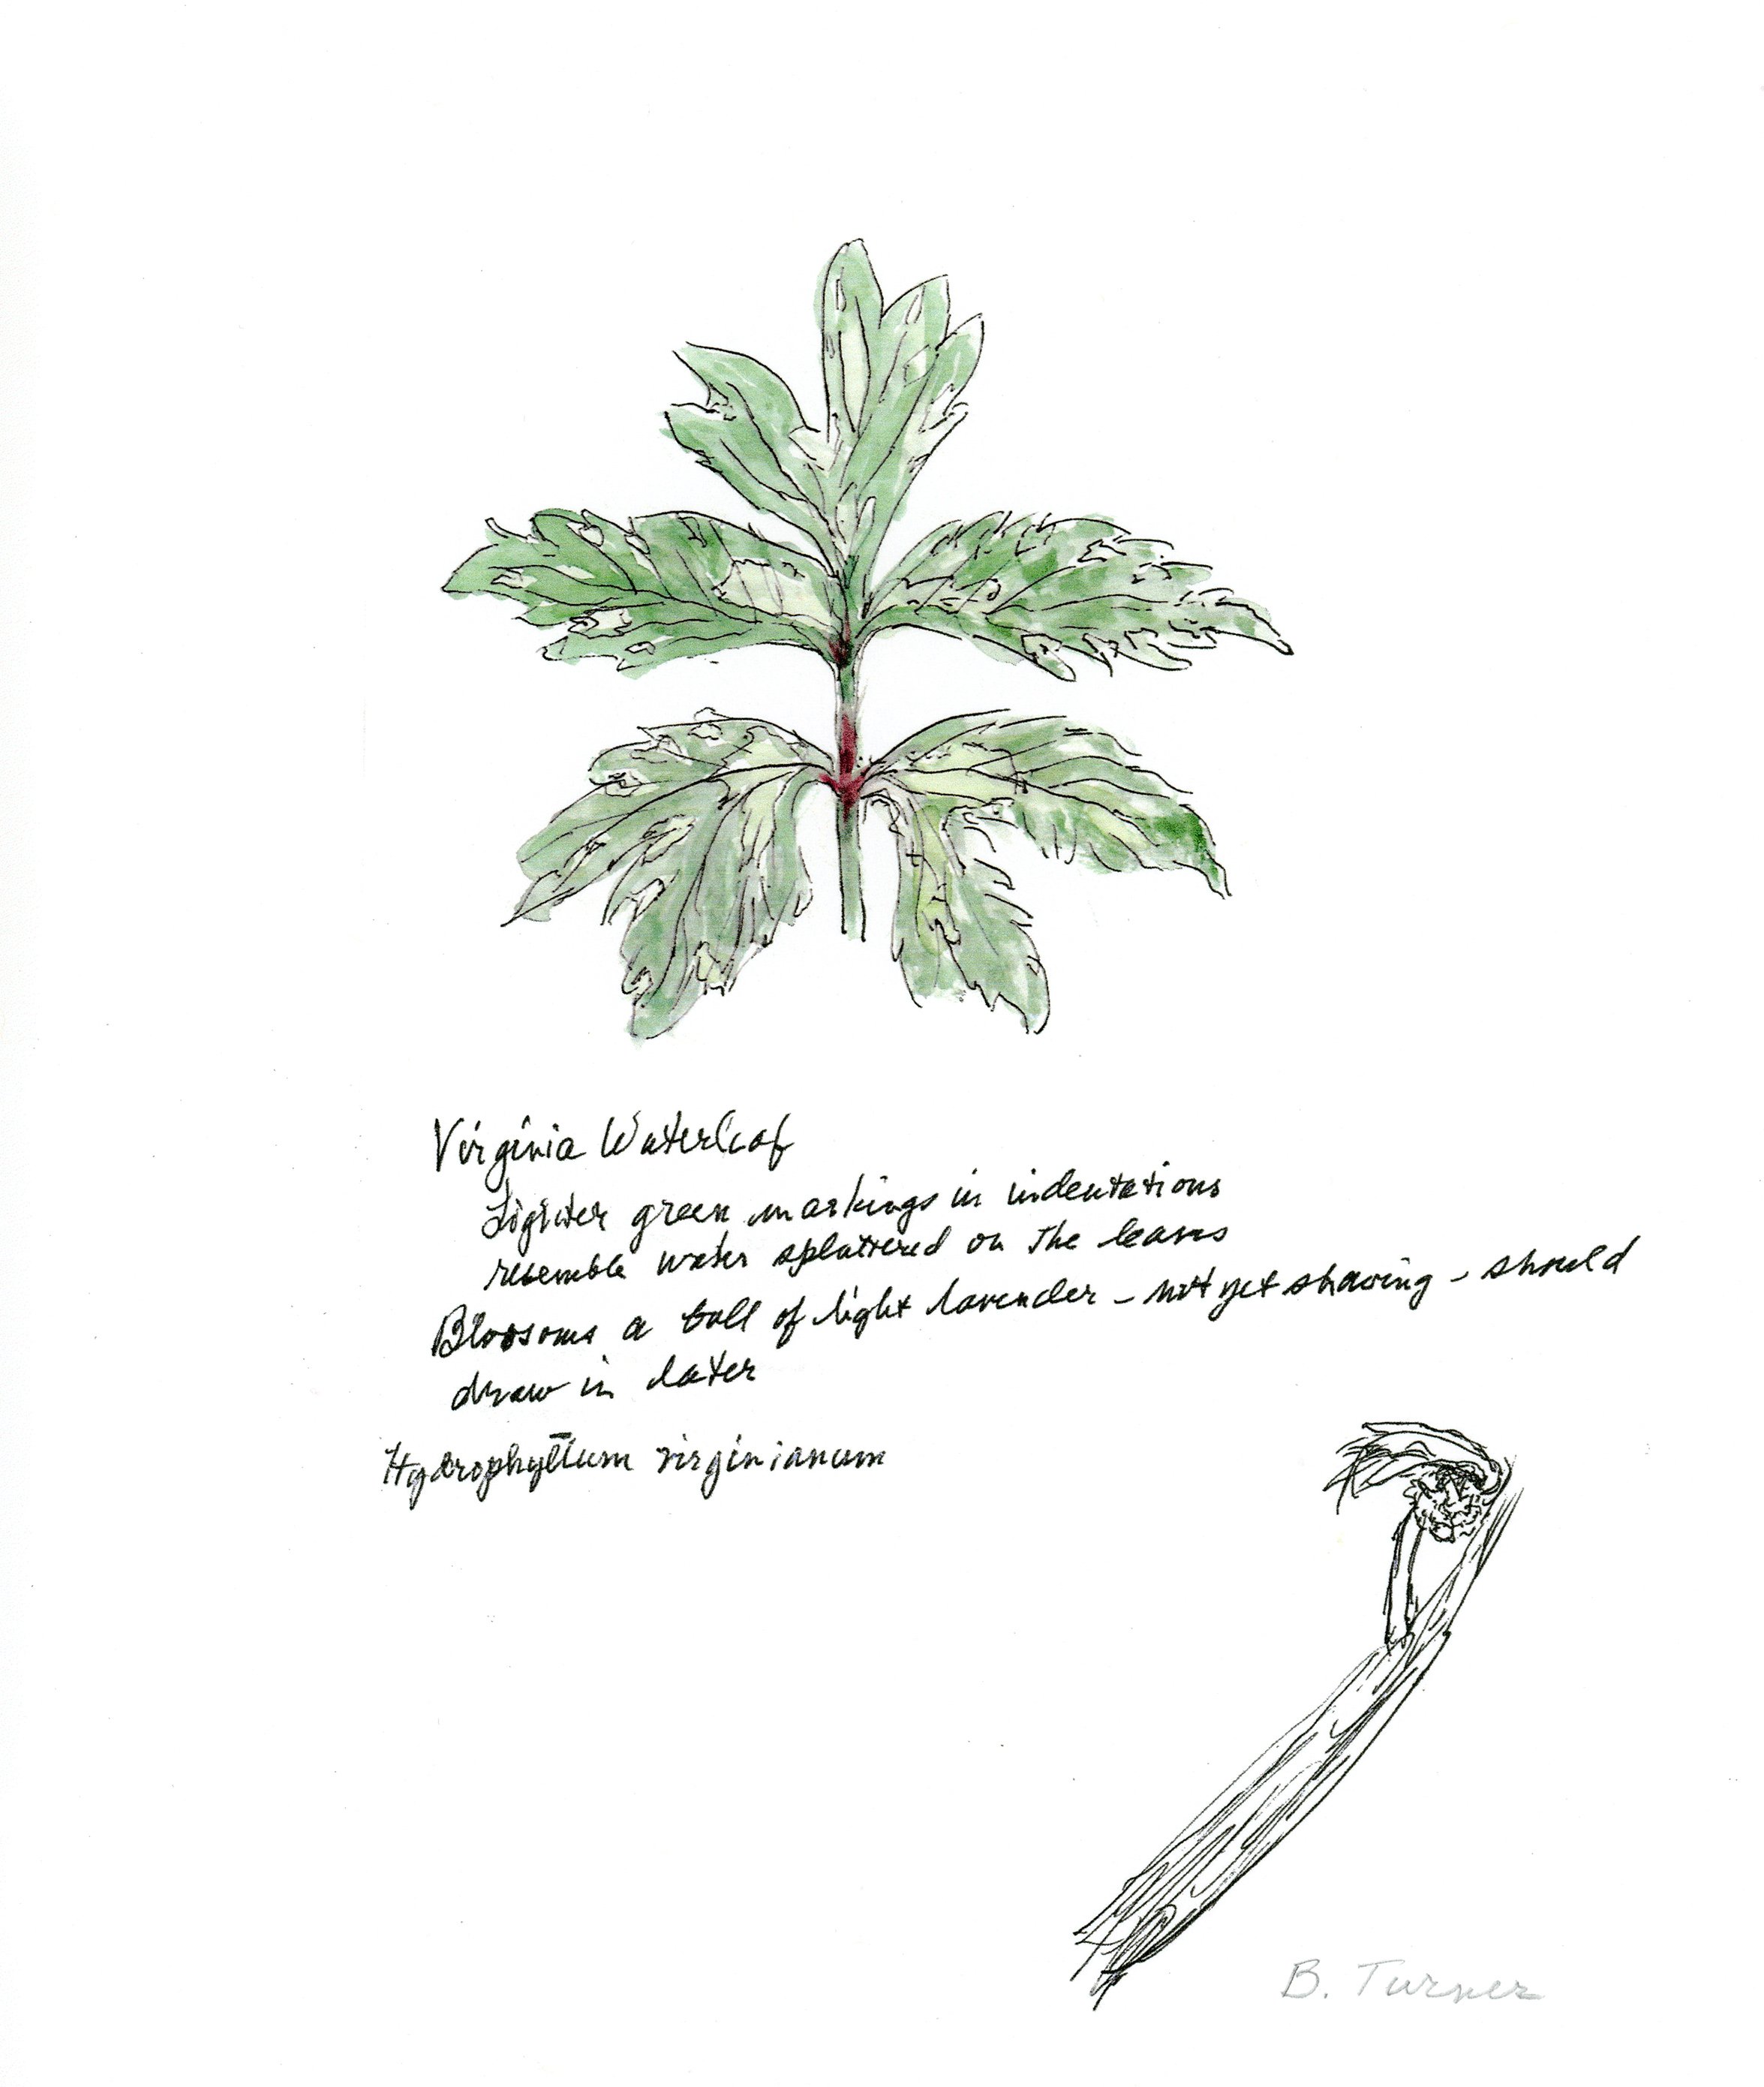 Virginia Waterleaf
Lighter green markings in indentations
resemble water splattered on the leaves
Blossoms a ball of light lavender - not yet showing - should
draw in later
Hydrophyllum virginianum
B. Turner